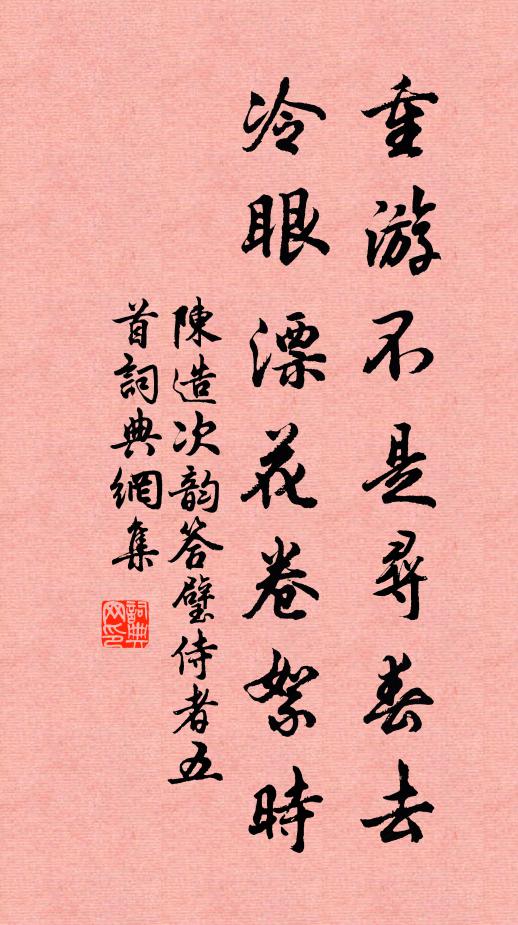 重游不是尋春去
冷眼漂花卷絮時
陳造次韵答璧侍者五
首詞典網集
詞典
網印